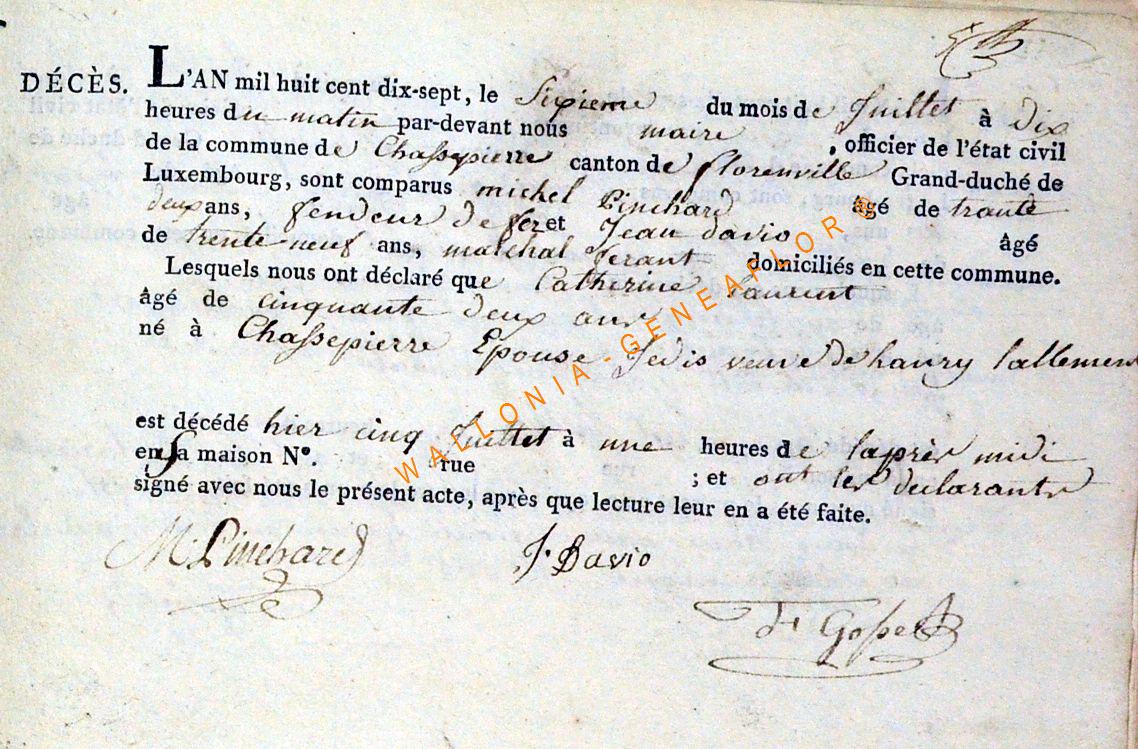 DÉCÈS. L'AN mil huit cent dix-sept, le Sixieme du mois de Juillet à dix
heures du matin par-devant nous maire , officier de l'état civil
de la commune de Chassepierre canton de florenville Grand-duché de
Luxembourg, sont comparus michel Pinchard âgé de trante
deux ans, fendeur de fer et Jean davio âgé
de trente neuf ans, malchal ferant domiciliés en cette commune.
Lesquels nous ont déclaré que Catherine Laurent
âgé de cinquante deux ans
né à Chassepierre Epouse Jedis veuve de hanry lallement
est décédé hier cinq Juillet à une heures de laprès midi
en sa maison N°. rue ; et ont les declarants
signé avec nous le présent acte, après que lecture leur en a été faite.
M. Pinchard J. Davio
Gosset
WALLONIA-GENEAFLOR®